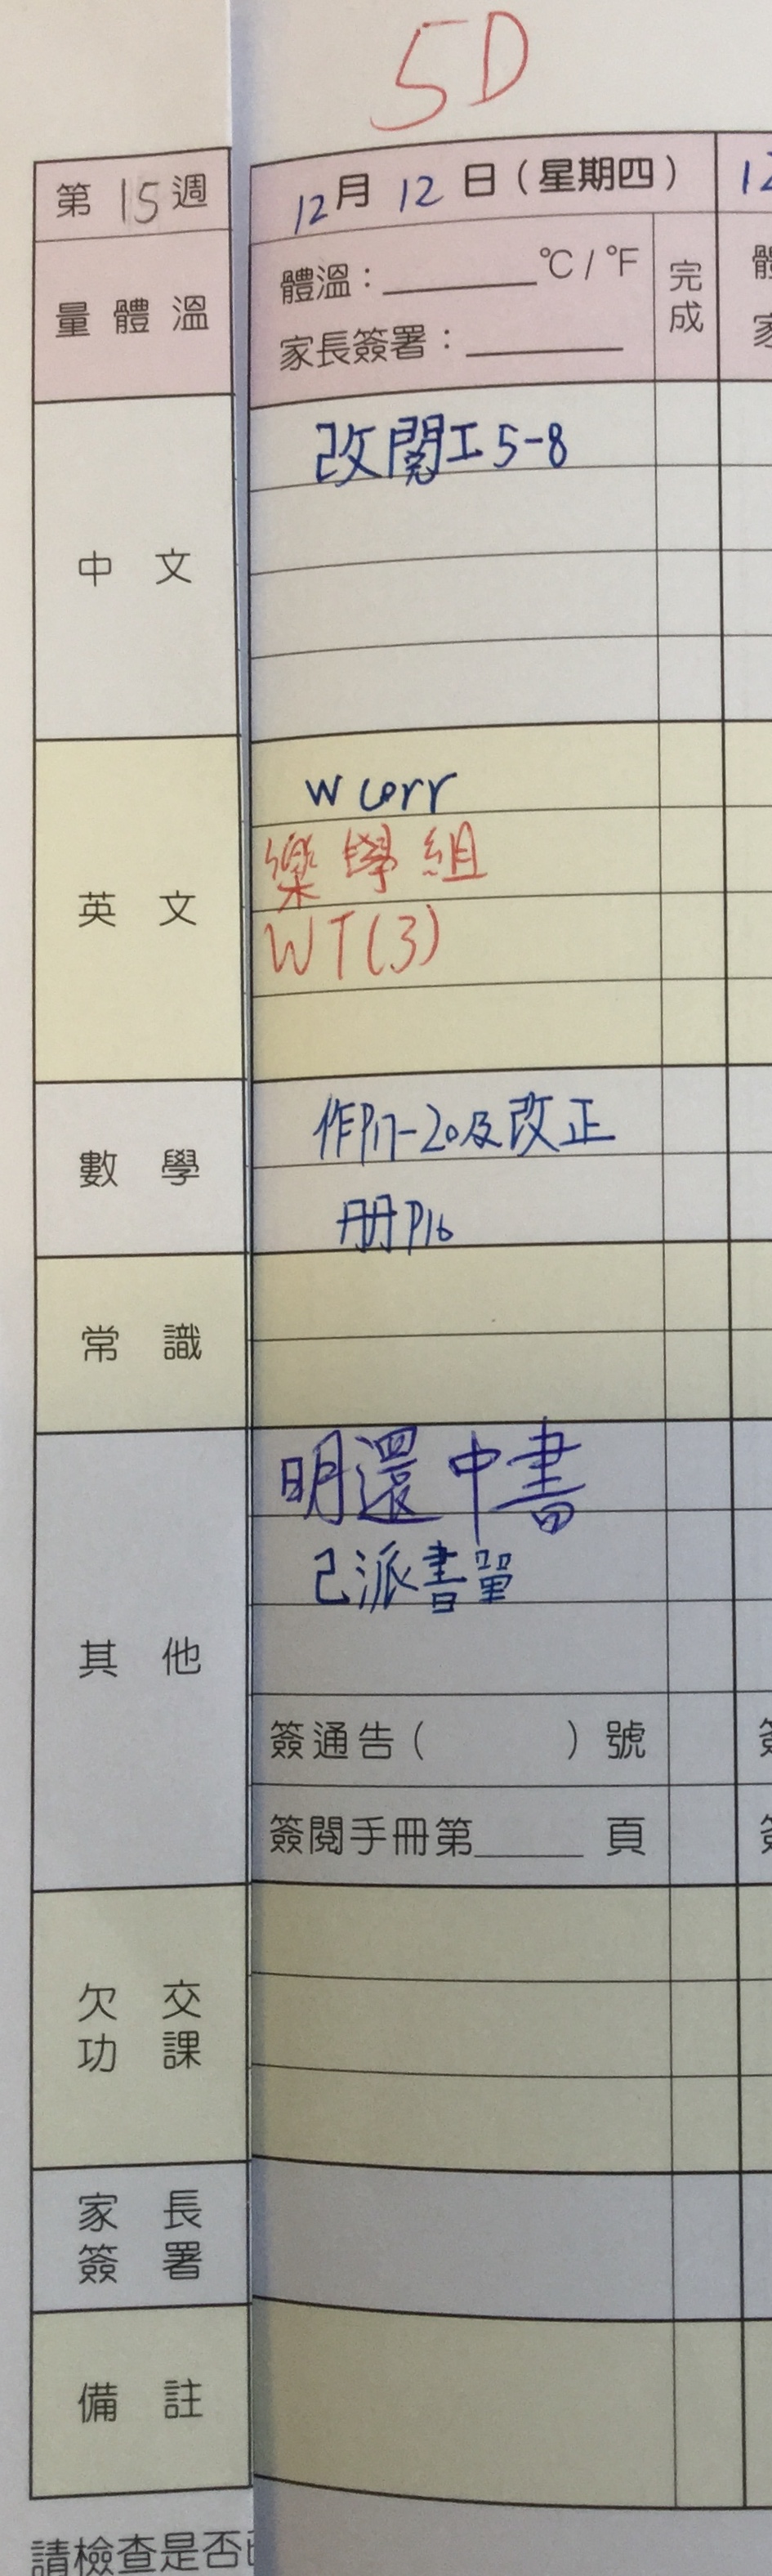 5D
第15週
12月12日（星期四）
12
量體溫
體溫：______°C / °F
家長簽署：______
完成
中文
改閱工5-8
英文
W corr
樂學組
WT(3)
數學
作P17-20及改正
冊P16
常識
其他
明還中書
已派書單
簽通告（　　　）號
簽閱手冊第______頁
欠交功課
家長簽署
備註
請檢查是否